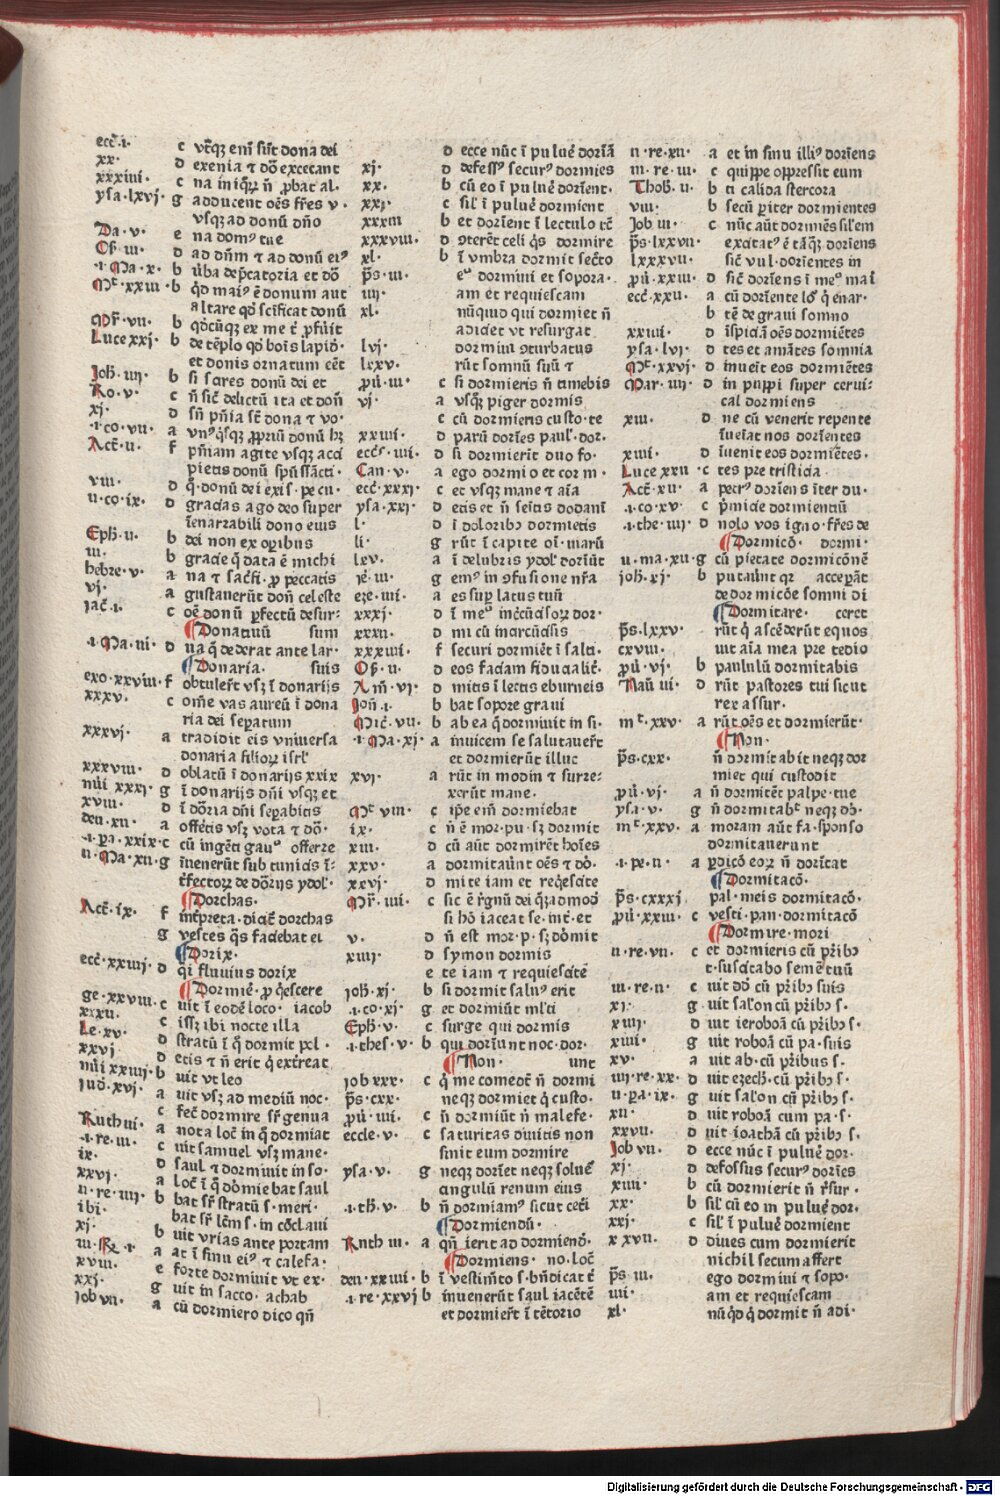 eccͥ.i. c vtͥqꝫ eniͥ sūt dona dei
xx. d exenia ⁊ dōͣ excecant
xxxiiii. c na iniqͦꝝ nͥ ꝓbat al.
ysa.lxvi. g adducent oēs frēs v.
vsqꝫ ad donū dño
Da.v. e na domꝰ tue
Oß.iii. d ad dñm ⁊ ad donū eiꝰ
.i.Ma.x. b
Mͭ.xxiii. b qͦd maiꝰ ē donum aut
altare qͦd scīficat donū
Mr̄.vii. b qͦdcūqꝫ ex me
Luce xxi. b de tēplo qͦd boīs lapid.
et donis ornatum cēt
Joh.iiii. b si scires donū dei et
Ro.v. c nͥ sic̄ delictū ita et don̄
xi. d sn̄ pn̄ia st̄ dona ⁊ vo.
.i.co.vii. a vnꝰqͥsqꝫ ꝓpriū donū hꝫ
Act̄.ii. f pn̄iam agite vsqꝫ acci
pietis donū spūs
viii. d donū dei exis. pecu.
ii.co.ix. d gracias ago deo super
īenarrabili dono eius
Eph.ii. b dei non ex oꝑibus
iii. b gracie q̄ data ē michi
hebre.v. a na ⁊ sacͥfi. ꝓ peccatis
vi. a gustauerūt don̄ celeste
Jac̄.i. c oē donū ꝑfectū desur:
Donatiuū sum
.i.Ma.iii. d na q̄ dederat ante lar.
Donaria. suis
exo.xxviii. f obtulerͭ vsꝫ ī donarijs
xxxv. c ome vas aureū ī dona
ria dei seꝑatum
xxxvi. a tradidit eis vniuersa
donaria filioꝝ isrͣl
xxxviii. d oblatū ī donarijs xxix
nūi xxxi. g ī donarijs dn̄i vsqꝫ et
xviii. d ī dōria dn̄i seꝑabitis
deu.xii. a offētis vsꝫ vota ⁊ dō.
.i.pa.xxix. c cū ingēti gauꝰ offerre
ii.Ma.xii. g īuenerūt sub tunicis ī:
t̄fectoꝝ de dōrijs ydol.
Dorchas.
Act̄.ix. f int̄preta. dicit̄ dorchas
g vestes qͣs faciebat ei
Dorix.
ecc̄.xxiiij. d qͥ fluuius dorix
Dormīe. ꝓ qͥescere
ge.xxviii. c uit ī eodē loco. iacob
xxxii. c issꝫ ibi nocte illa
Le.xv. d stratū ī q̄ dormit pol.
xxvi d etis ⁊ nͥ erit qͥ extͥreat
nūi xxiiij. b uit vt leo
Jud̄.xvi. a uit vsꝫ ad mediū noc.
c fec̄ dormire sr̄ genua
Ruth iii. a nota loc̄ in q̄ dormiat
.i.re.iii. c uit samuel vsꝫ mane.
ix. d saul ⁊ dormiuit in so.
xxvi. a loc̄ ī qͦ dōmiebat saul
ii.re.iiij. b bat sr̄ stratū s. meri.
ibi. bat sr̄ lēm s. in cōclaui
xi. b uit vrias ante portam
iii.R.i. a at ī sinu eiꝰ ⁊ calefa.
xviii. e forte dormiuit vt ex.
xxj. g uit in sacco. achab
Job vii. a cū dormiero dico qn̄
d ecce nūc ī puluē dorīā
xj. d defessꝰ securꝰ dormies
xx. b cū eo ī puluē dorīent.
xxi. c sil̄ ī puluē dormient
xxxiii b et dorīent ī lectulo
xxxviii. d ꝯterēt celi qͥs dormire
b ī vmbra dormit sec̄to
p̄s.iii. eͦ dormiui et sopora.
iiij. am et requiescam
xl. nūquid qui dormiet nͥ
adiciet vt resurgat
lvj. dormiui ꝯturbatus
lxxv. rūt somnū suū ⁊
ꝓū.iii. c si dormieris nͥ timebis
vj. a vsqͦ piger dormis
c cū dormieris custo. te
xxiiii. d parū dorīes paul. dor.
ecc̄s.iiii. d si dormierit duo fo.
Can.v. a ego dormio et cor m.
ecc̄.xxxi. c et vsqꝫ mane ⁊ aīa
ysa.xxj. d etis et nͥ scitis
l. d ī doloribꝰ dormietis
li. g rūt ī capite oī. uiarū
lxv. a ī delubris ydol. dorīūt
Je.iii. g emꝰ in ꝯfusione nr̄a
eze.iiii. a es suꝑ latus tuū
xxxj. d
xxxii. d mi cū incircūcisis
xxxiiii. f securi dormiēt ī salti.
Oß.ii. d eos faciam fiducialit̄.
Am̄.vi. d mitis ī lectis eburneis
Jon̄.i. b bat sopore graui
Mic̄.vii. b ab ea q̄ dormiuit in si.
.i.Ma.xi. a inuicem se salutauerͭ
et dormierūt illuc
xvi. a rūt in modin ⁊ surre:
xerūt mane.
Mͭ.viii. c ip̄e em̄ dormiebat
ix. c nͥ ē mor. pu. sꝫ dormit
xiii. d cū aūt dormirēt hoīes
xxv. a dormitaūnt oēs ⁊ dō.
xxvi. d mite iam et reqͥescite
Mr̄.iiii. c sic ē rͣgnū dei qͣꝫadmod
si hō iaceat se.
v. d nͥ est mor. p. sꝫ dōmit
xiiij. d symon dormis
e te iam ⁊ requiescite
Joh.xi. b si dormit saluꝰ erit
.i.co.xi. g et dormiūt ml̄ti
Eph.v. c surge qui dormis
.i.thes.v. b qui dorīunt noc. dor.
Non. unt
Job xxx. c qͥ me comedt̄ nͥ dormi
p̄s.cxx. neqꝫ dormiet qͥ custo.
ꝓū.iiii. c nͥ dormiūt nͥ malefe.
eccle.v. c saturitas diuitis non
sinit eum dormire
ysa.v. g neqꝫ dorīet neqꝫ soluēt
angulū renum eius
.i.th.v. b nͥ dormiamꝰ sicut ceti
Dormiendū.
Ruth iii. a qn̄ ierit ad dormiend.
Dormiens. no. loc̄
deu.xxiiii. b ī vestim̄to s. bn̄dicat t̄
.i.re.xxvi b inuenerūt saul iacētē
et dormierͭ ī tētorio
ii.re.xii. a et in sinu illiꝰ dorīens
iii.re.iii. c quippe oppressit eum
Thob.ii. b ti calida stercora
viii. b secū ꝑiter dormientes
Job iii. c nūc aūt dormiēs sil̄em
p̄s.lxxvii. excitatꝰ ē tāqͣꝫ dorīens
lxxxvii. sic̄ vul. dorīentes in
ꝓū.xxiii. d sic̄ dorīens ī meͦ mai
ecc̄.xxii. a cū dorīente lōͥ qͥ enar.
b tē de graui somno
xxiiii. d īspidā oēs dormiētes
ysa.lvi. d tes et amātes somnia
Mͭ.xxvi. d inueīt eos dormiētes
Mar.iiii. d in puppi super cerui:
cal dormiens
xiii. d ne cū venerit repente
īueīat nos dorīentes
xiiii. d īuenit eos dormiētes.
Luce xxii. c tes pre tristicia.
Act̄.xii. a petrꝰ dorīens īter du.
.i.co.xv. c pͥmicie dormientiū
.i.the.iiii. d nolo vos igno. frēs de
Dormicō. dormi.
ii.ma.xii. g cū pietate dormicōnē
Joh.xi. b putauūt qꝛ acceꝑāt
de dormicōe somni di
Dormitare. ceret
p̄s.lxxv. rūt qͥ ascēderūt equos
cxviii. uit aīa mea pre tedio
ꝓū.vi. b paululū dormitabis
Naū iii. d rūt pastores tui sicut
rex assur.
mͭ.xxv. a rūt oēs et dormierūt.
Non.
p̄s.cxx. nͥ dormitabit neqꝫ dor
miet qui custodit
ꝓū.vi. a nͥ dormitēt palpe. tue
ysa.v. g nͥ dormitabͭ neqꝫ dō.
mͭ.xxv. a moram aūt fa. sponso
dormitauerunt
.i.pe.ii. a ꝑdicō eoꝝ nͥ dorītat
Dormitacō.
p̄s.cxxxi pal. meis dormitacō.
ꝓū.xxiii. c vesti. pan. dormitacō
Dormire. mori
ii.re.vii. c et dormieris cū pr̄ibꝰ
t. suscitabo semē tuū
iii.re.ii. c uit dd̄ cū pr̄ibꝰ suis
xi. g uit sal̄on cū pr̄ibꝰ s.
xiiij. d uit ieroboā cū pr̄ibꝰ s.
xiiii. g uit roboā cū pa. suis
xv. a uit ab. cū pr̄ibus s.
iiij.re.xx. d uit ezech. cū pr̄ibꝰ s.
ii.pa.ix. g uit sal̄on cū pr̄ibꝰ s.
xii. d uit roboā cum pa. s.
xxvii. d uit ioathā cū pr̄ibꝰ s.
Job vii. d ecce nūc ī puluē dor.
xi. d defossus securꝰ dorīes
xiiii. b cū dormierit nͥ r̄sur.
xx. b sil̄ cū eo in puluē dor.
xxi. c sil̄ ī puluē dormient
xxvii. d diues cum dormierit
nichil secum affert
p̄s.iii. ego dormiui ⁊ sopo.
iiii. am et requiescam
xl. nūqͥd qͥ dormit nͥ adi.
Digitalisierung gefördert durch die Deutsche Forschungsgemeinschaft - DFG